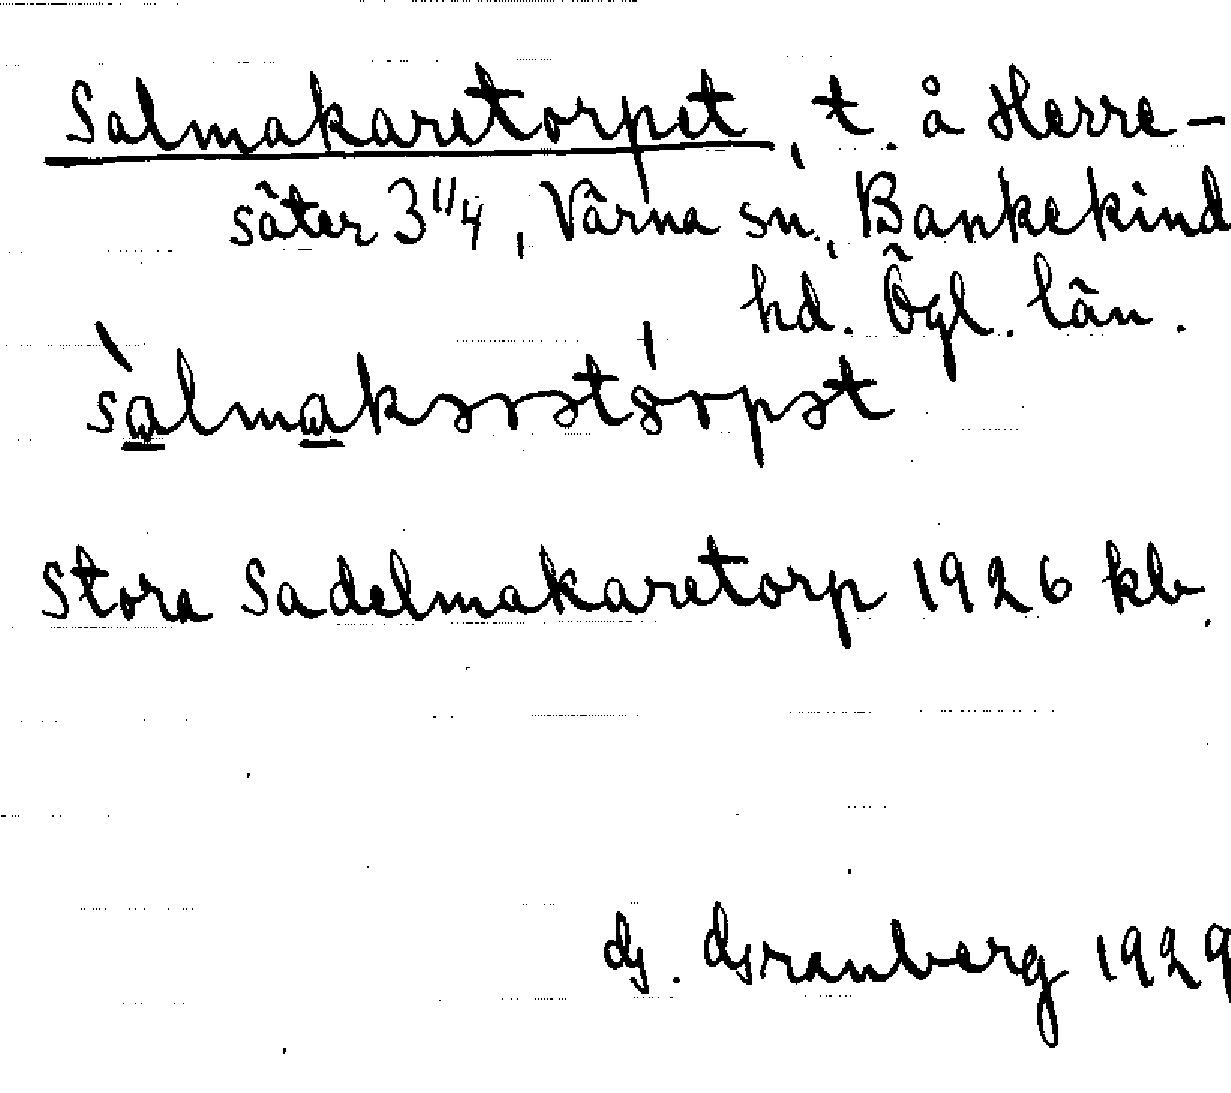 Salmakaretorpet, t. å Herre-
säter 3 11/4, Värna sn., Bankekind
hd. Ögl. län.
sàlmakərətórpət
Stora Sadelmakaretorp 1926 kb.
G. Granberg 1929